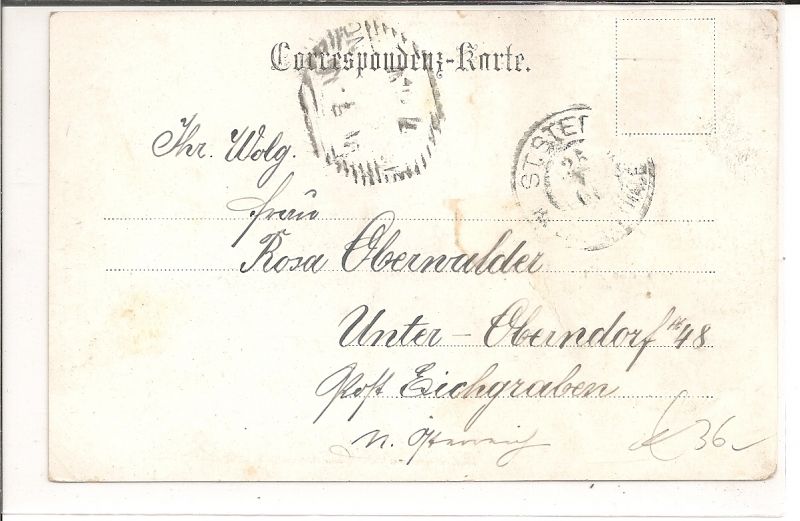 Correspondenz-Karte.
Ihr. Wolg.
Frau
Rosa Oberwalder
Unter - Oberndorf № 48
Post Eichgraben
N. Österreich
K 36 -
ST. STE